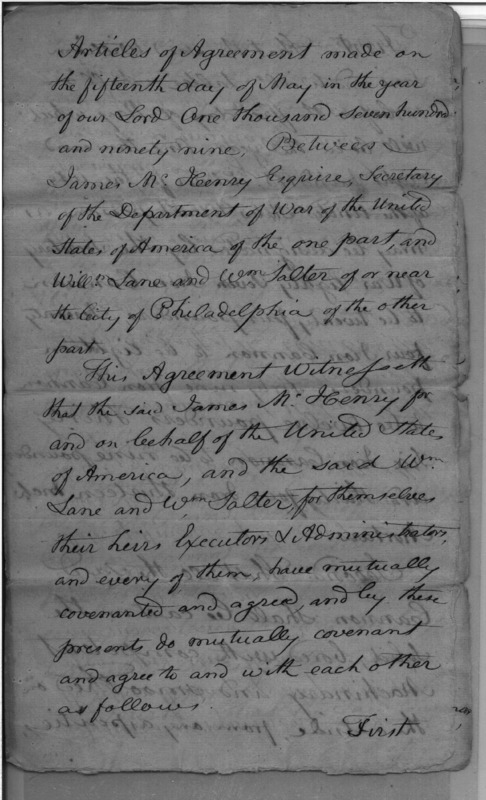 Articles of Agreement made on
the fifteenth day of May in the year
of our Lord One thousand seven hundred
and ninety nine, Between
James Mc Henry Esquire, Secretary
of the Department of War of the United
States of America of the one part, and
Willm Lane and Wm Salter of or near
the City of Philadelphia of the other
part
This Agreement Witnesseth
that the said James Mc Henry for
and on behalf of the United States
of America, and the said Wm
Lane and Wm Salter, for themselves
their heirs Executors & Administrators,
and every of them, have mutually
covenanted and agreed, and by these
presents, do mutually covenant
and agree to and with each other
as follows.
First